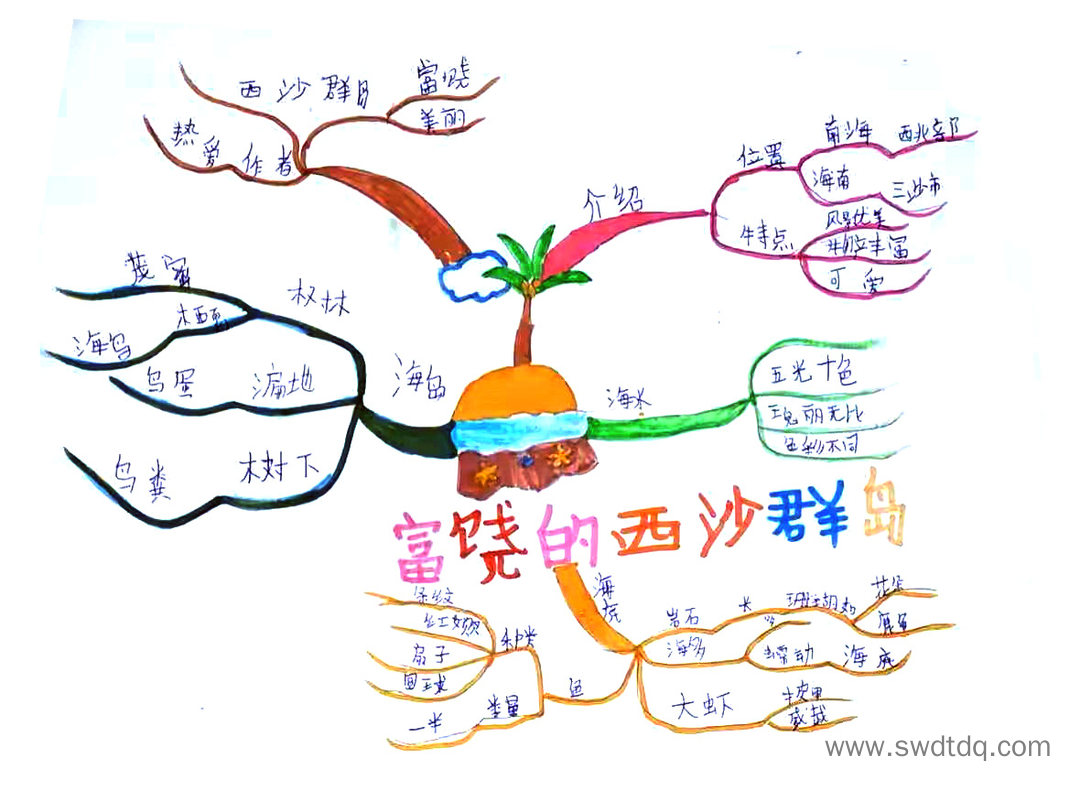 富饶的西沙群岛
介绍
位置
南海
西北部
海南
三沙市
特点
风景优美
物产丰富
可爱
海水
五光十色
瑰丽无比
色彩不同
海底
岩石
长
珊瑚
花朵
鹿角
海参
蠕动
海底
大虾
披甲
威武
鱼
种类
条纹
扇子
圆球
类量
一半
海岛
树林
茂密
海鸟
遍地
鸟蛋
树下
鸟粪
西沙群岛
富饶
美丽
作者
热爱
www.swdtdq.com